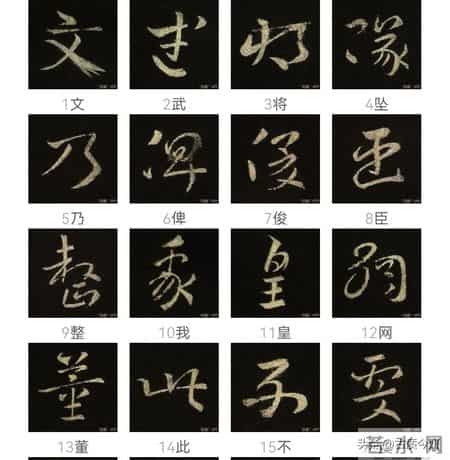 文 武 将 隊
1文 2武 3将 4坠
乃 俾 俊 臣
5乃 6俾 7俊 8臣
整 我 皇 網
9整 10我 11皇 12网
董 此 不
13董 14此 15不